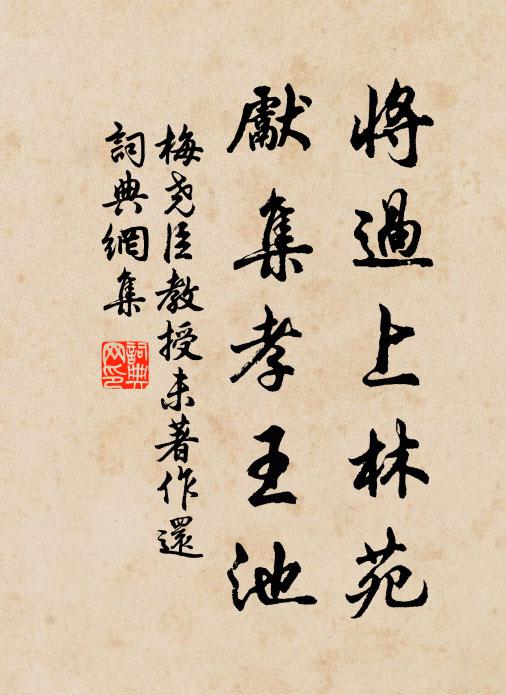 將過上林苑
獻集孝王池
梅尭臣教授未著作還
詞典網集
詞典網印